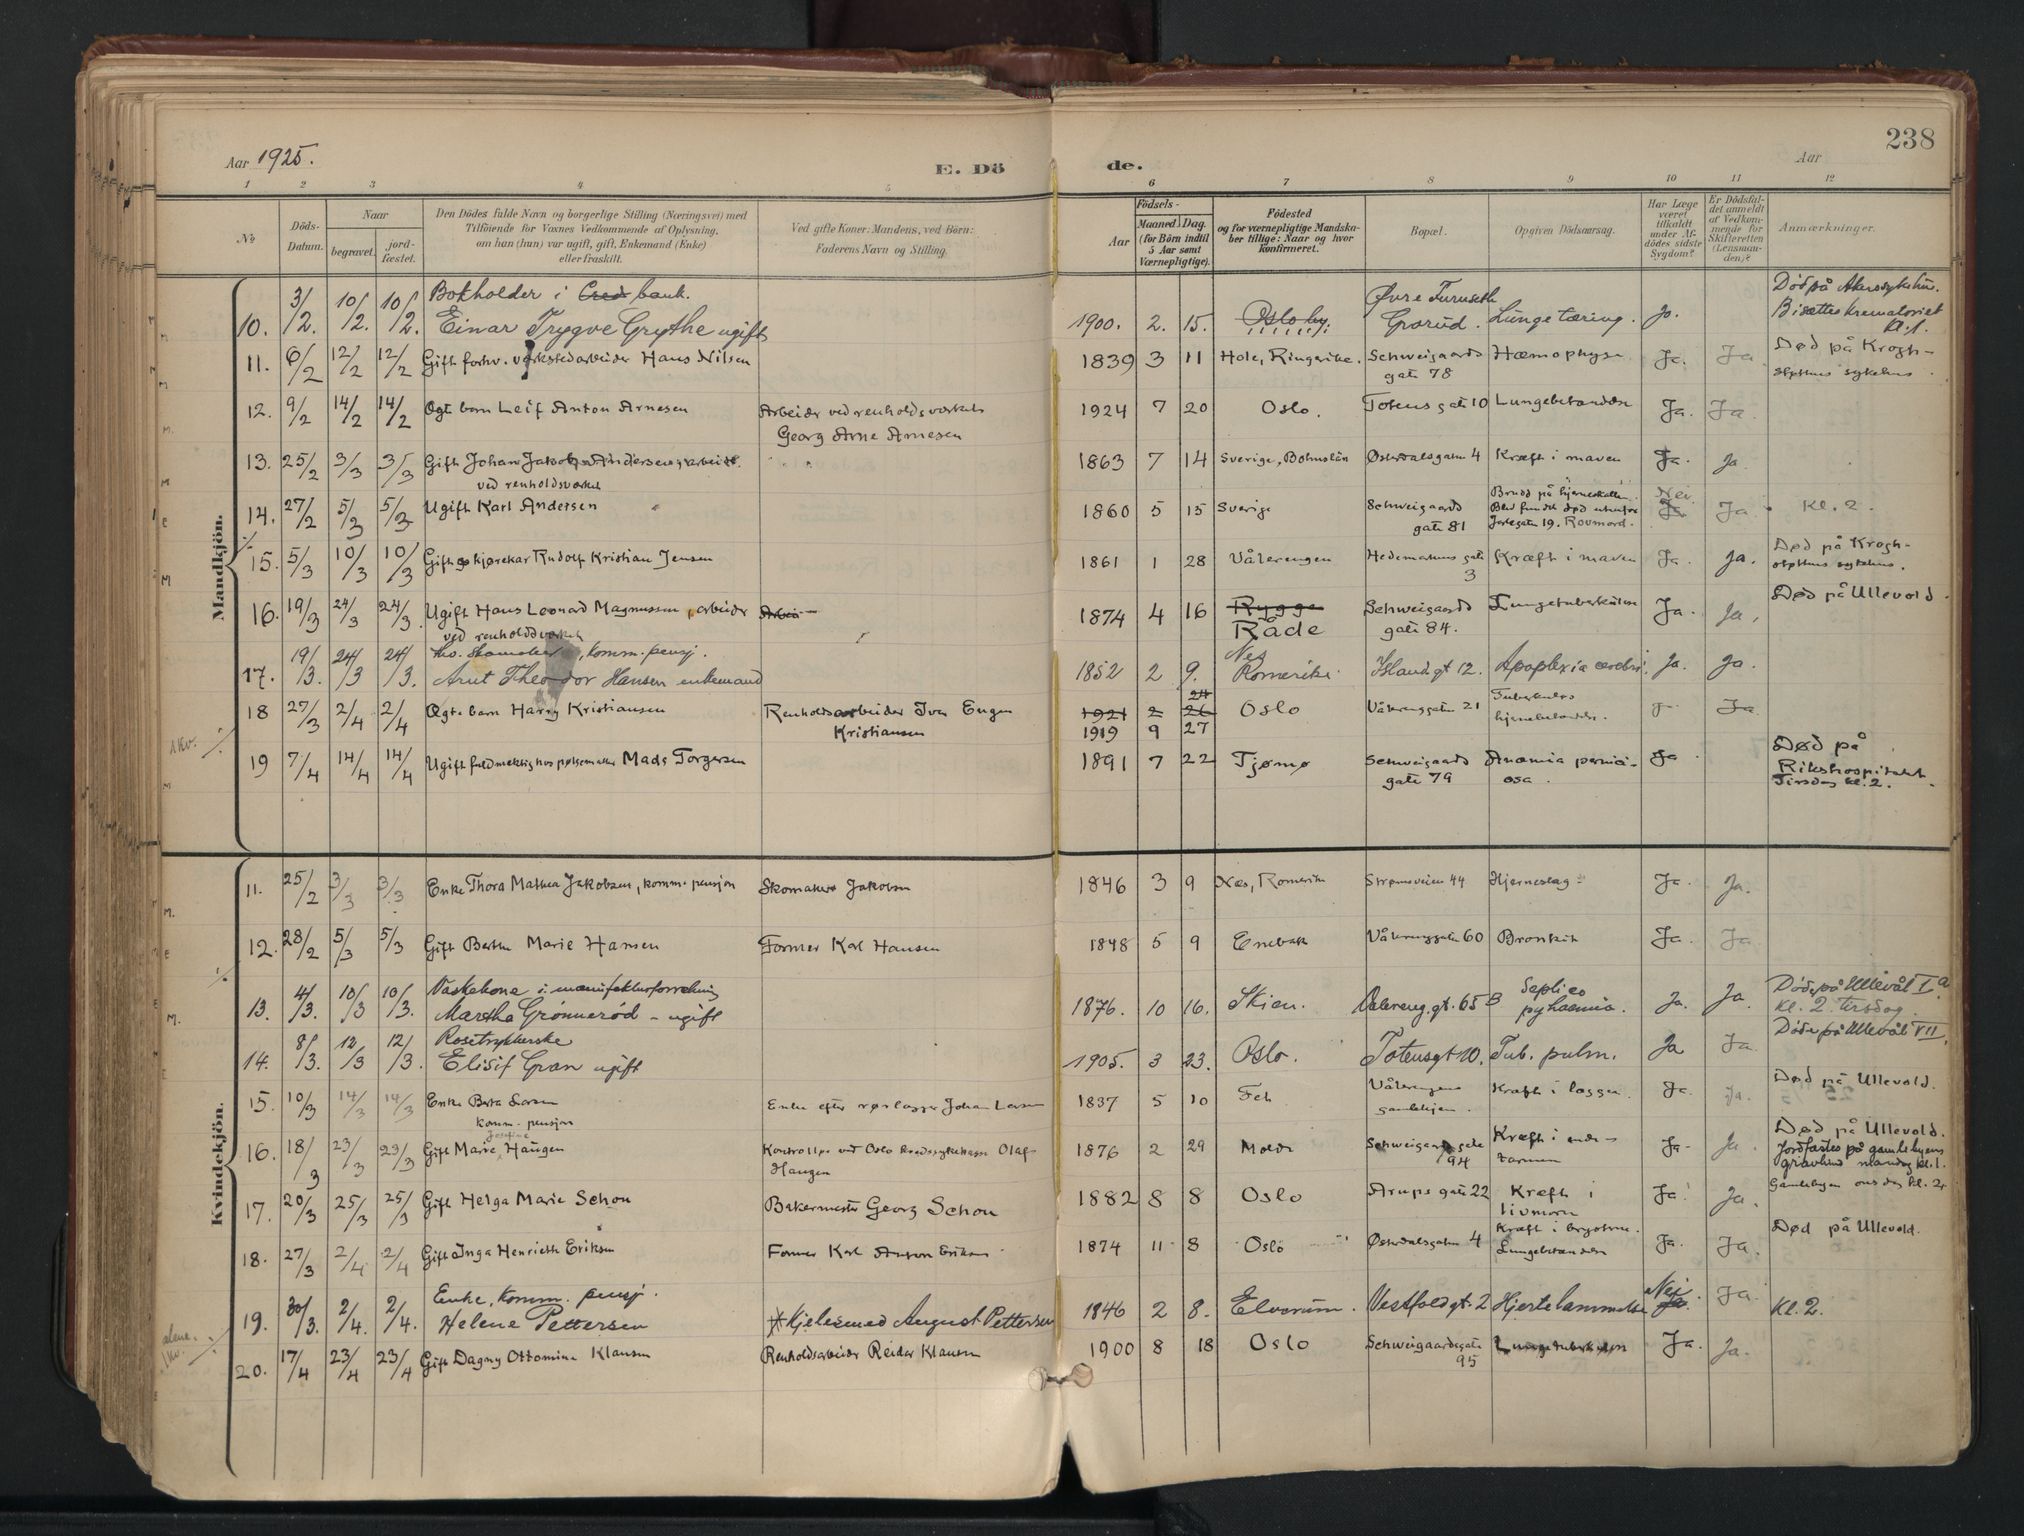 238
Aar 1925.
E. Dö de.
Aar
1 2 3 4 5 6 7 8 9 10 11 12
No
Döds-Datum.
Naar
begravet.
jord-fæstet.
Den Dödes fulde Navn og borgerlige Stilling (Næringsvei) med
Tilföiende for Voxnes Vedkommende af Oplysning,
om han (hun) var ugift, gift, Enkemand (Enke)
eller fraskilt.
Ved gifte Koner: Mandens, ved Börn:
Faderens Navn og Stilling.
Födsels-
Aar
Maaned. Dag.
(for Börn indtil
5 Aar samt
Værnepligtige).
Födested
og for værnepligtige Mandska-
ber tillige: Naar og hvor
konfirmeret.
Bopæl.
Opgiven Dödsaarsag.
Har Læge
været
tilkaldt
under Af-
dödes sidste
Sygdom?
Er Dödsfal-
det anmeldt
af Vedkom-
mende for
Skifteretten
(Lensman-
den)?
Anmærkninger.
Mandkjön.
Bokholder i Cred bank. Øvre Furuseth Død på Akers sykehus.
10. 3/2. 10/2. 10/2. Einar Trygve Grythe ugift 1900. 2. 15. Oslo by. Grorud. Lungetæring. Ja. Bisættes krematoriet
kl. 1.
11. 6/2 12/2 12/2 Gift forhv. verkstedarbeider Hans Nilsen 1839 3 11 Hole, Ringerike. Schweigaards Hæmophyse Ja. Ja Død på Krogh-
gate 78 støttens sykehus.
12. 9/2 14/2 14/2 Ægte barn Leif Anton Arnesen Arbeider ved renholdsverket 1924 7 20 Oslo. Totens gate 10 Lungebetændelse Ja. Ja.
Georg Arne Arnesen
13. 25/2 3/3 3/3 Gift Johan Jakob Andersen, arbeider 1863 7 14 Sverige, Bohuslän Østerdalsgaten 4 Kræft i maven Ja. Ja.
ved renholdsverket
14. 27/2 5/3 5/3 Ugift Karl Andersen 1860 5 15 Sverige Schweigaards Brudd på hjerneskallen. Nei. Ja Ja. Kl. 2.
gate 81 Blev fundet død utenfor
Jarlegaten 19. Rovmord.
15. 5/3 10/3 10/3 Gift kjørekar Rudolf Kristian Jensen 1861 1 28 Vålerengen Hedemarkens gate Kræft i maven Ja. Ja. Død på Krogh-
3 støttens sykehus.
16. 19/3 24/3 24/3 Ugift Hans Leonard Magnussen, arbeider Arbei 1874 4 16 Rygge Schweigaards Lungetuberkulose Ja. Ja. Død på Ullevold.
ved renholdsverket Råde gate 84.
komm. pensj. Nes
17. 19/3. 24/3 24/3. Arnt Theodor Hansen enkemand 1852 2 9. Romerike Islandgt 12. Apoplexia cerebri. Ja. Ja.
24
18 27/3 2/4 2/4 Ægte barn Harry Kristiansen Renholdsarbeider Iver Eugen 1921 2 26 Oslo Vålerenggaten 21 Tuberkuløs Ja
Kristiansen 1919 9 27 hjernebetændelse.
19 7/4 14/4 14/4 Ugift fuldmektig hos pølsemaker Mads Torgersen 1891 7 22 Tjømø Schweigaards Anæmia pernici- Ja Død på
gate 79 osa. Rikshospitalet.
Tirsdag kl. 2.
1 kv.
Kvindekjön.
11. 25/2 3/3 3/3 Enke Thora Mathea Jakobsen, komm. pensjon Skomaker Jakobsen 1846 3 9 Næs, Romerike Strømsveien 44 Hjerneslag Ja. Ja.
12. 28/2 5/3 5/3 Gift Berthe Marie Hansen Former Karl Hansen 1848 5 9 Enebak Vålerenggaten 60 Bronkit Ja. Ja
Vaskekone i manufakturforretning Septico Døde på Ullevål I a.
13. 4/3. 10/3 10/3. Martha Grønnerød - ugift 1876. 10 16. Skien. Vålereng. gt. 65 B pyhaemia. Ja. Ja. Kl. 2. tirsdag
Rosetrykkerske Døde på Ullevål VII.
14. 8/3. 12/3 12/3. Elisif Gran ugift 1905. 3 23. Oslo. Totensgt 10. Tub. pulm. Ja Ja.
15. 10/3 14/3 14/3 Enke Berta Larsen Enke efter rørlægger Johan Larsen 1837 5 10 Fet Vålerengens Kræft i læggen. Ja. Ja. Død på Ullevold.
komm. pensjon gamlehjem.
Josefine
16. 18/3 23/3 23/3 Gift Marie Haugen Kontrollør ved Oslo kredssykekasse Olaf 1876 2 29 Molde Schweigaards gate Kræft i ende- Ja. Ja. Død på Ullevold.
Haugen 94 tarmen Jordfæstes på gamlebyens
gravlund mandag kl. 1.
17. 20/3 25/3 25/3 Gift Helga Marie Schou Bakermester Georg Schou 1882 8 8 Oslo Arups gate 22 Kræft i Ja. Ja. Gamlebyen onsdag kl. 2.
livmoren
18. 27/3 2/4 2/4 Gift Inga Henriette Eriksen Former Karl Anton Eriksen 1874 11 8 Oslo Østerdalsgaten 4 Kræft i brystene. Ja. Ja. Død på Ullevold.
Lungebetændelse
Enke, komm. pensj.
19. 30/3. 2/4. 2/4. Helene Pettersen Kjelesmed August Pettersen 1846 2 8. Elverum. Vestfoldgt. 2 Hjertelammelse Nei Ja. Ja. Kl. 2.
20. 17/4 23/4 23/4 Gift Dagny Ottomine Klausen Renholdsarbeider Reidar Klausen 1900 8 18 Oslo Schweigaardsgate Lungetuberkulose Ja. Ja.
95
alene.
1 kv.